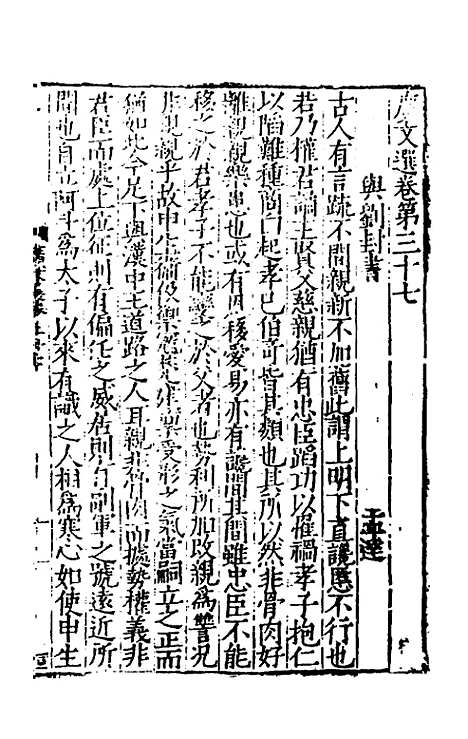 廣文選卷第三十七
與劉封書
孟達
古人有言疏不間親新不加舊此謂上明下直讒慝不行也
若乃權君譎主賢父慈親猶有忠臣蹈功以罹禍孝子抱仁
以陷難種商白起孝己伯奇皆其類也其所以然非骨肉好
離親親樂患也或有恩移愛易亦有讒間其間雖忠臣不能
移之於君孝子不能變之於父者也勢利所加改親為讐况
非親親乎故申生衛伋禦寇楚建稟受形之氣當嗣立之正而
猶如此今足下與漢中王道路之人耳親非骨肉而據勢權義非
君臣而處上位征則有偏任之威居則有副軍之號遠近所
聞也自立阿斗為太子以來有識之人相為寒心如使申生